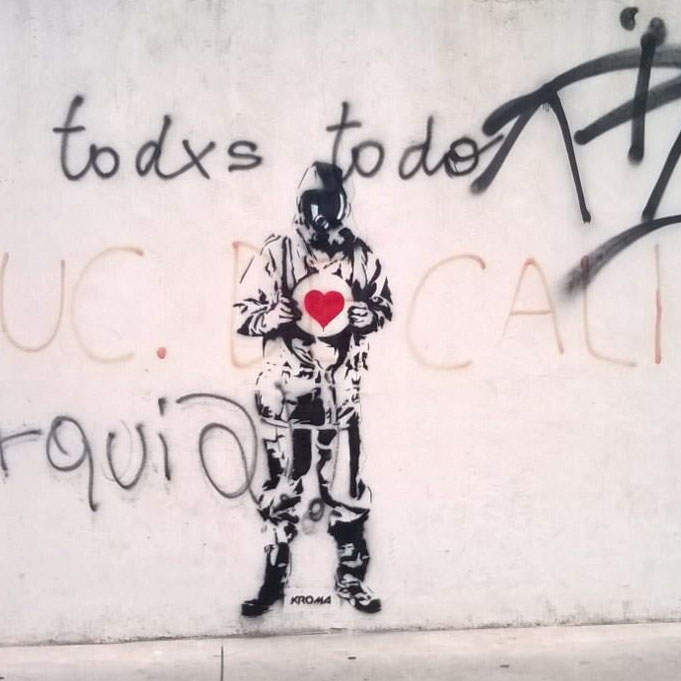 todxs todo
UC. D CALI
rquia
KROMA